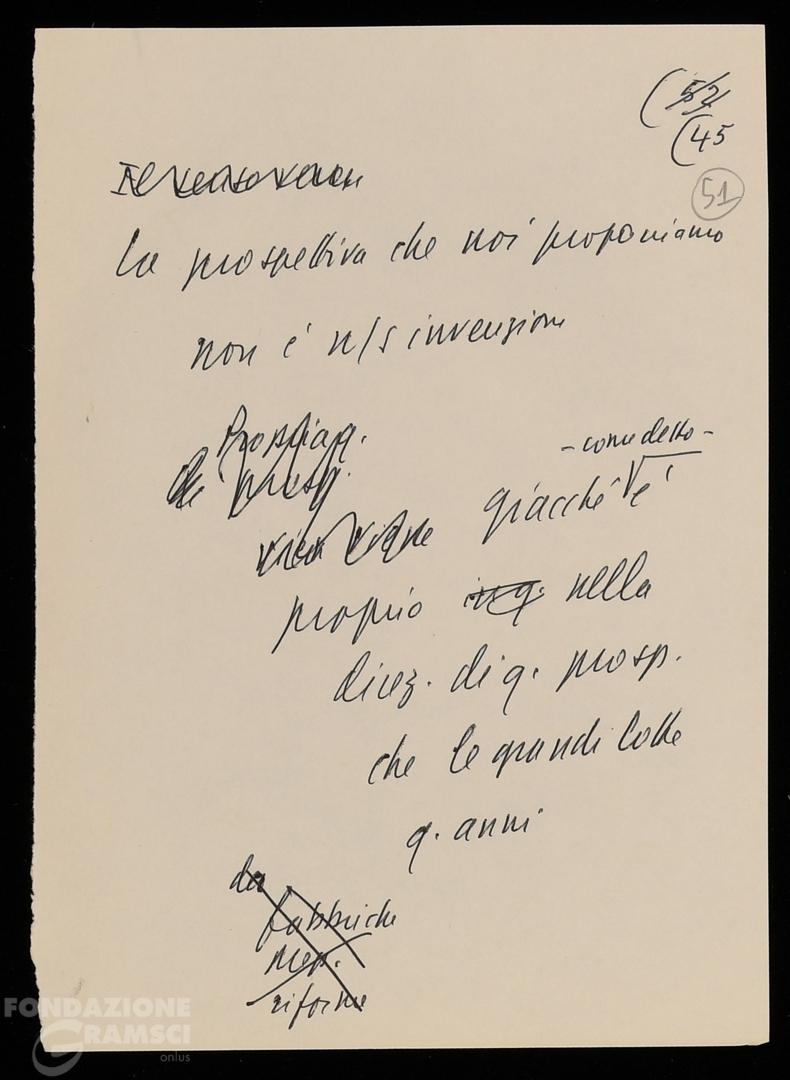 (52
(45
51
La prospettiva che noi proponiamo
non è n/s invenzione
- come detto -
giacché è
proprio nella
direz. di q. prosp.
che le grandi lotte
q. anni
da
fabbriche
riforme
FONDAZIONE
GRAMSCI
onlus